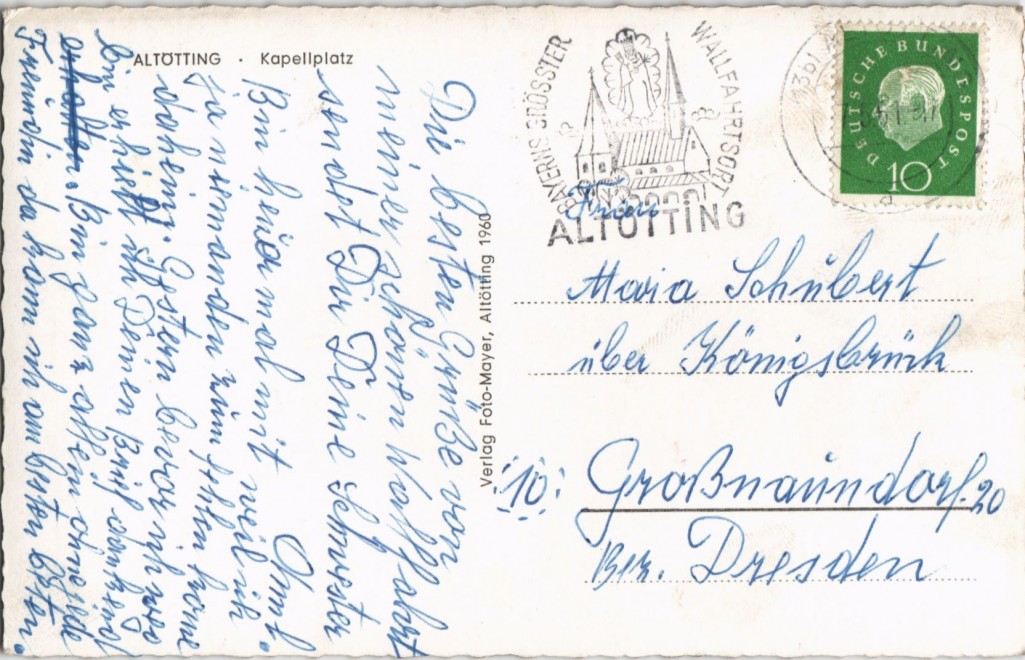 ALTÖTTING · Kapellplatz
Die besten Grüße von
meiner schönen Wallfahrt
sendet Dir Deine Schwester
Bin heuer mal mit weil ich
ja niemanden zum habe
daheim. Gestern bevor ich weg
bin erhielt ich Deinen Brief dankend
erhalten. Bin ganz allein ohne jede
Freundin da kann ich am besten Beten.
Verlag Foto-Mayer, Altötting 1960
BAYERNS GRÖSSTER WALLFAHRTSORT
ALTÖTTING
DEUTSCHE BUNDESPOST
10
Frau
Maria Schubert
über Königsbrück
10 Großnaundorf. 20
Bez. Dresden